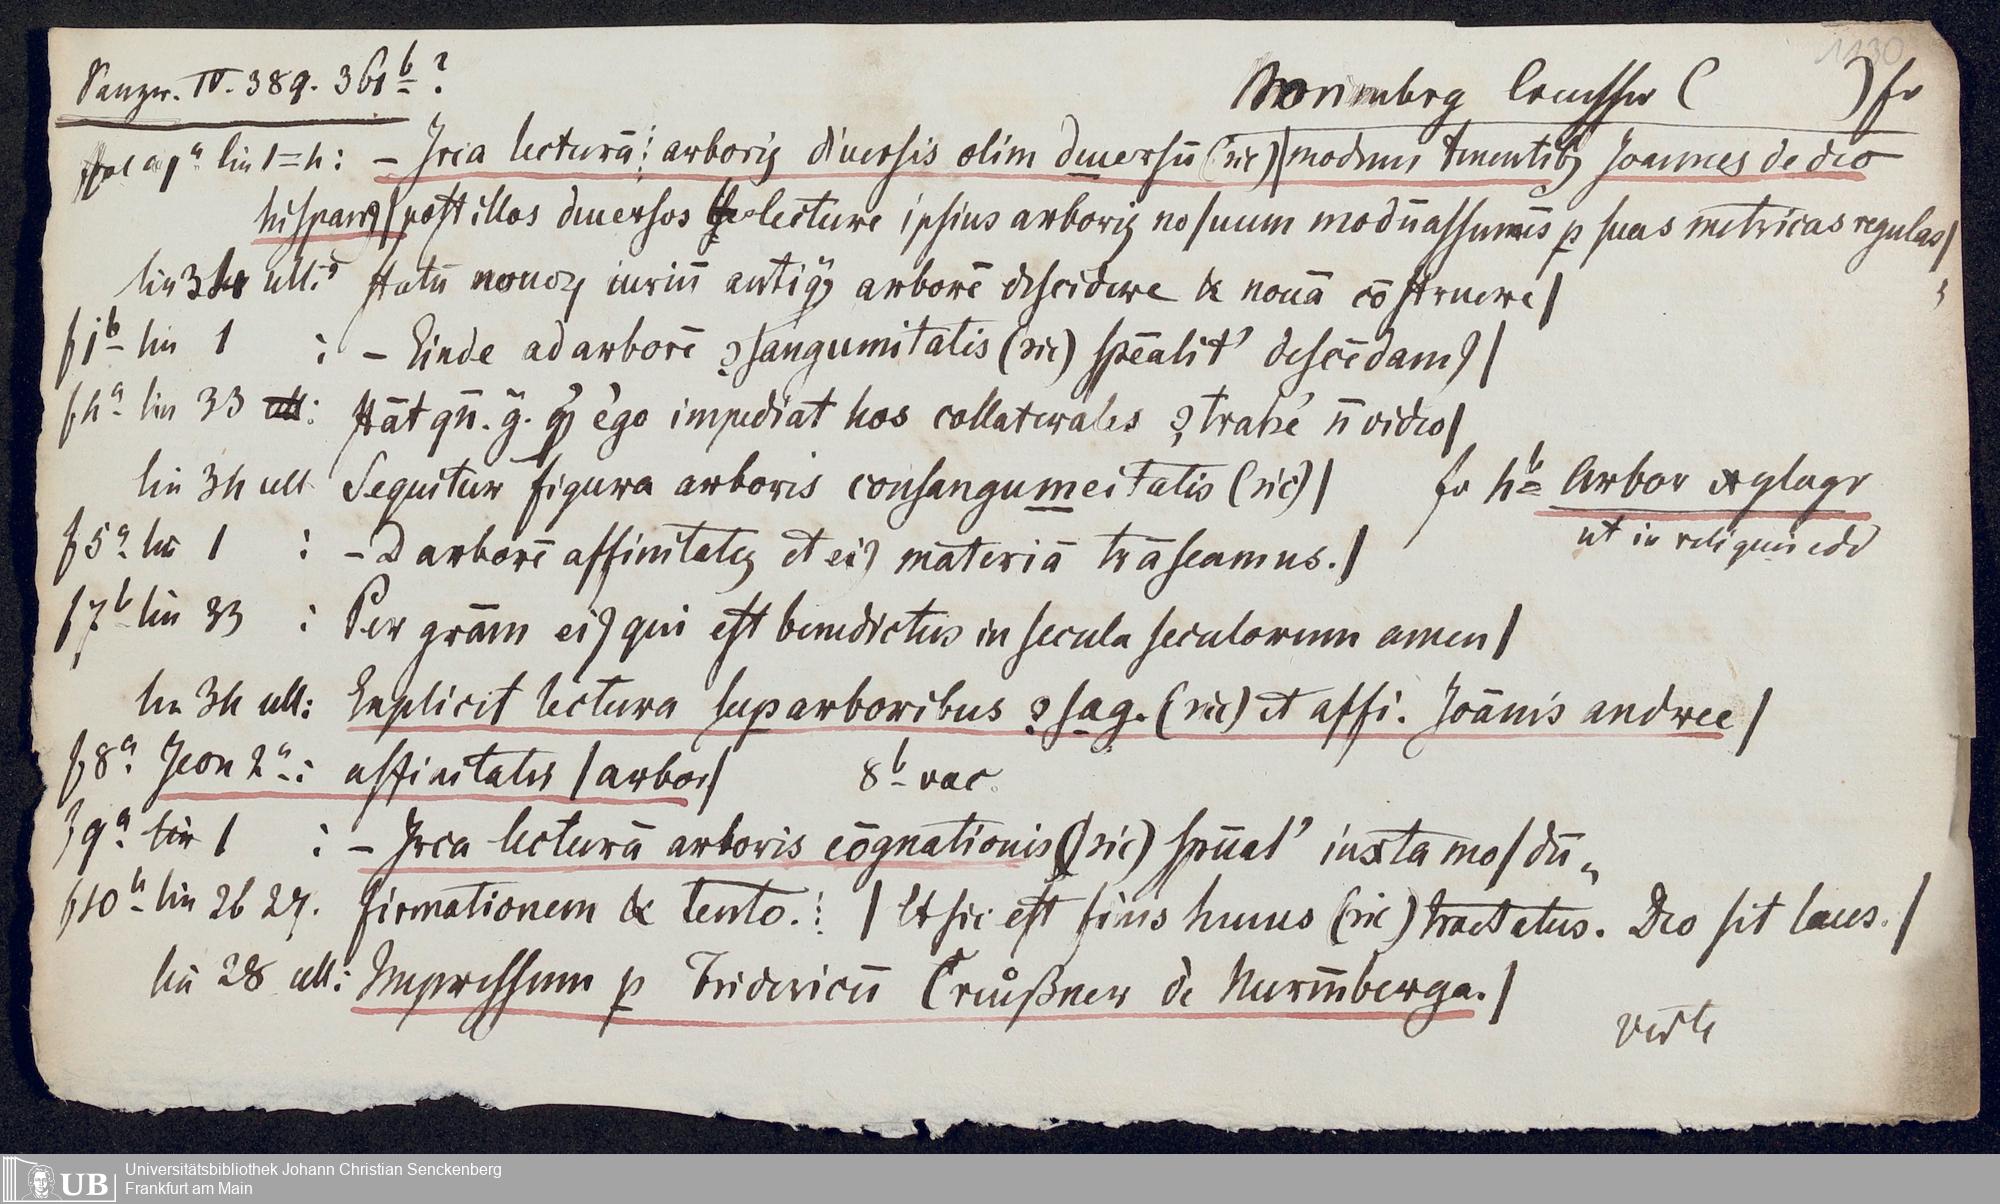 1130
Panzer. IV. 389. 361b ?
Norimberg Creussner ( ) fo
fol a 1a lin 1=4: – Irca lecturā: arborꝫ diuersis olim diuersū (sic) | modum tenentibꝫ Joannes de deo
hispanꝰ | post illos diuersos lecture ipsius arborꝫ no|uum modū assumēs p suas metricas regulas |
lin 34 ult: statū nouoꝝ iuriū antiqꝫ arborē descidere & nouā cōstruere |
f 1b lin 1 : – Einde ad arborē ꝯsangumitatis (sic) spēalit' descēdamꝰ |
f 4a lin 33 : stāt qn̄. g̈. ꝙ ego impediat hos collaterales ꝯtrahe' n̄ video |
lin 34 ult Sequitur figura arboris consangumeitatis (sic) | fo 4b = Arbor xylogr
ut in reliquis edd
f 5a lin 1 : – D arborē affinitatꝫ et eiꝰ māteriā trāseamus. |
f 7b lin 33 : Per grām eiꝰ qui est benedictus in secula seculorum amen |
lin 34 ult: Explicit lectura sup arboribus ꝯsag. (sic) et affi. Joānis andree |
f 8a Icon 2a: affinitatis | arbor | 8b vac.
f 9a lin 1 : – Irca lecturā arboris cōgnationis (sic) spūal' iuxta mo|dū
f 10a lin 26 27. firmationem & tento. : | Et sic est finis humus (sic) tractatus. Deo sit laus. |
lin 28 ult: Impressum p Fridericū Creůßner de Nurm̄berga. |
verte
UB Universitätsbibliothek Johann Christian Senckenberg
Frankfurt am Main